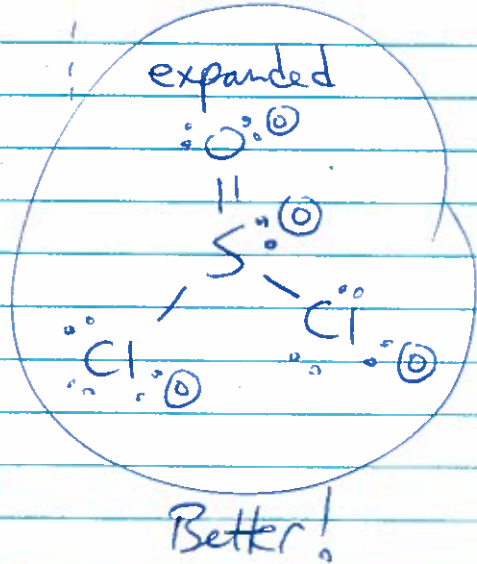 expanded
O 0
S 0
Cl
Cl 0
0
Better!